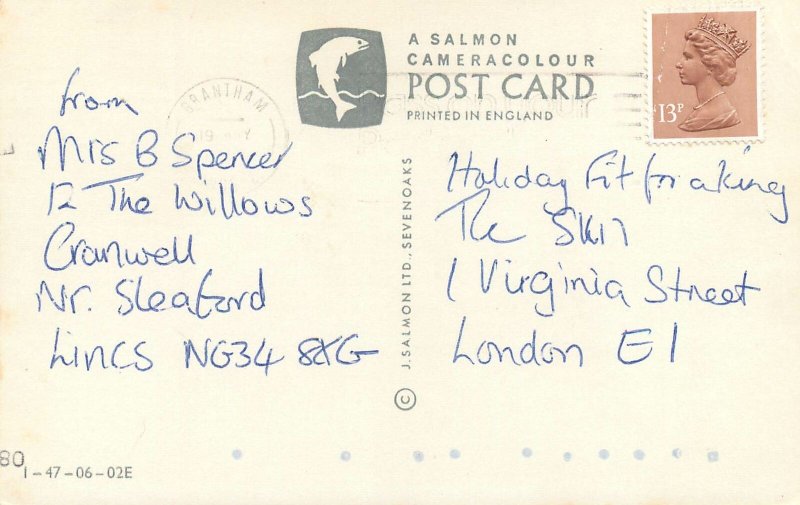 A SALMON
CAMERACOLOUR
POST CARD
PRINTED IN ENGLAND
GRANTHAM
19
13P
from
Mrs B Spencer
12 The Willows
Cranwell
Nr. Sleaford
Lincs NG34 8XG
J. SALMON LTD., SEVENOAKS ©
Holiday Fit for a king
The Sun
1 Virginia Street
London E1
80
1-47-06-02E